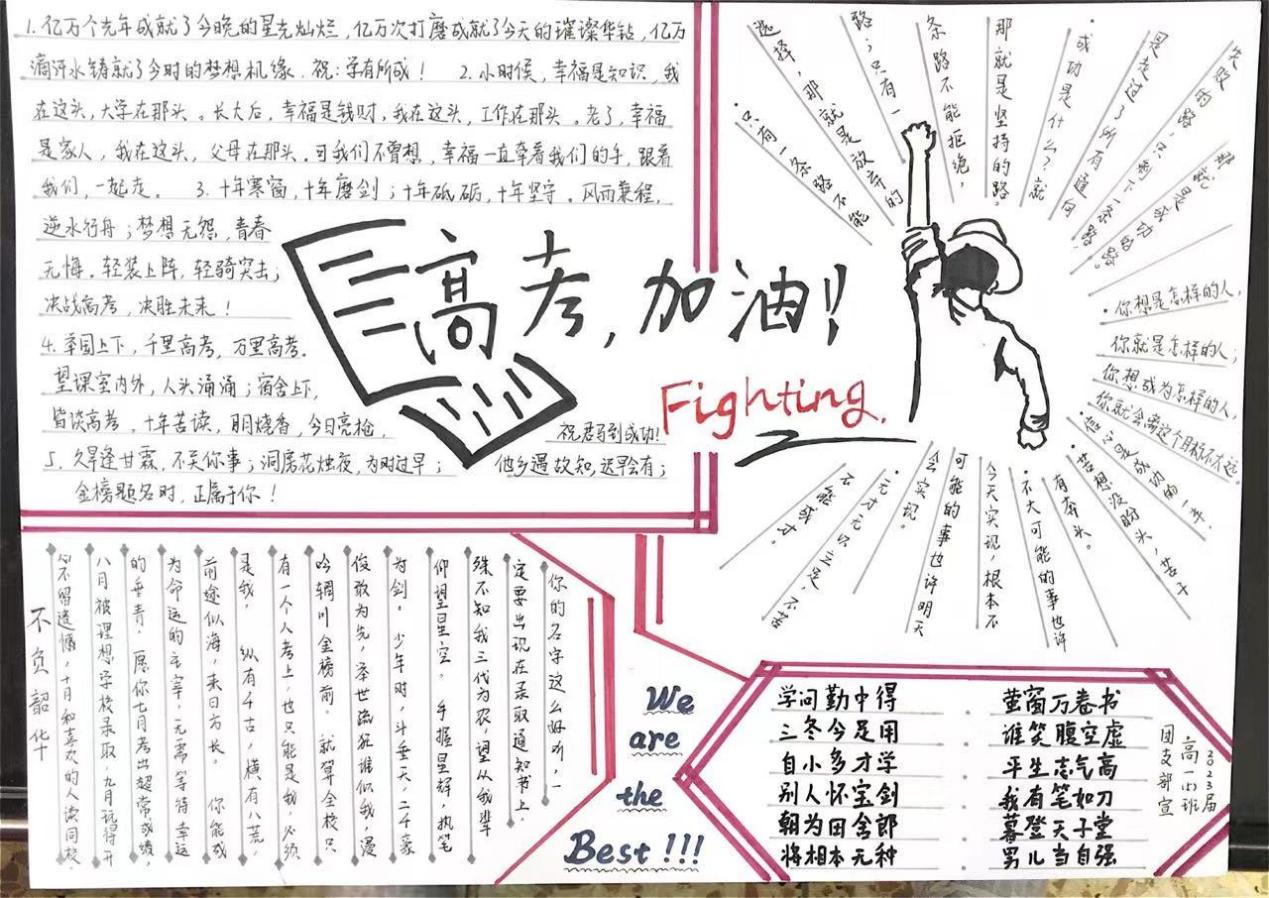 1. 亿万个光年成就了今晚的星光灿烂，亿万次打磨成就了今天的璀璨华钻，亿万
滴汗水铸就了今时的梦想机缘．祝：学有所成！ 2. 小时候，幸福是知识，我
在这头，大学在那头。长大后，幸福是钱财，我在这头，工作在那头。老了，幸福
是家人，我在这头，父母在那头．可我们不曾想，幸福一直牵着我们的手，跟着
我们，一起走。 3. 十年寒窗，十年磨剑；十年砥砺，十年坚守。风雨兼程，
逆水行舟；梦想无怨，青春
无悔．轻装上阵，轻骑突击；
决战高考，决胜未来！
4. 举国上下，千里高考，万里高考．
望课室内外，人头涌涌；宿舍上下，
皆谈高考。十年苦读，朝烧香，今日亮枪，
祝君马到成功!
5. 久旱逢甘霖，不关你事；洞房花烛夜，为时过早； 他乡遇故知，迟早会有；
金榜题名时，正属于你！
高考，加油!!
Fighting.
·只有一条路不能
选择，那就是放弃的
路；只有一
条路不能拒绝，
那就是坚持的路。
·成功是什么？就
是走过了所有通向
失败的路，只剩下一条路，
那就是成功的路。
·你想是怎样的人，
你就是怎样的人；
你想成为怎样的人，
你就会离这个目标不太远。
是成功的一半．
·苦想没盼头，苦干
有奔头。
·不大可能的事也许
今天实现，根本不
可能的事也许明天
会实现。
·一无方无以立足，不苦
不能成才。
你的名字这么好听，一
定要出现在录取通知书上．
殊不知我三代为农，望从我辈
仰望星空。 手握星辉，执笔
为剑。 少年时，斗垂天，二千豪
俊敢为先，圣世疏狂谁似我，漫
吟辋川金榜前． 就算全校只
有一个人考上，也只能是我，必须
是我． 纵有千古，横有八荒，
前途似海，来日方长． 你能成
为命运的主宰，无需等待幸运
的垂青．愿你七月考出超常成绩，
八月被理想学校录取，九月玩得开
不留遗憾，十月和喜欢的人读同校．
不负韶华
We
are
the
Best !!!
学问勤中得 · 萤窗万卷书
三冬今足用 · 谁笑腹空虚
自小多才学 · 平生志气高
别人怀宝剑 · 我有笔如刀
朝为田舍郎 · 暮登天子堂
将相本无种 · 男儿当自强
2023届
高一(5)班
团支部宣